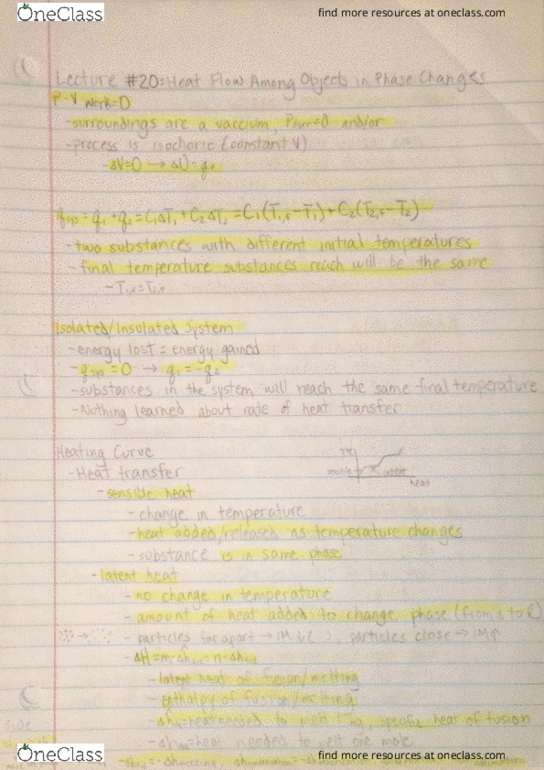 OneClass
find more resources at oneclass.com
Lecture #20: Heat Flow Among Objects in Phase Changes
P-V Work=0
-surroundings are a vaccum, Psurr=0 and/or
-process is isochoric (constant V)
-ΔV=0 → ΔU=qv
qsys=q1+q2=C1ΔT1+C2ΔT2=C1(T1,f-T1)+C2(T2,f-T2)
-two substances with different initial temperatures
-final temperature substances reach will be the same
-T1,f=T2,f
Isolated/Insulated System
-energy lost = energy gained
-qsys=0 → q1=-q2
-substances in the system will reach the same final temperature
-Nothing learned about rate of heat transfer
Heating Curve
-Heat transfer
heat
-sensible heat
-change in temperature
-heat added/released as temperature changes
-substance is in same phase
-latent heat
-no change in temperature
-amount of heat added to change phase (from s to l)
-particles far apart → IMF, particles close → IMF
-latent heat of fusion/melting
-enthalpy of fusion/melting
heat needed to melt specific heat of fusion
heat needed to melt one mole
side
OneClass
find more resources at oneclass.com